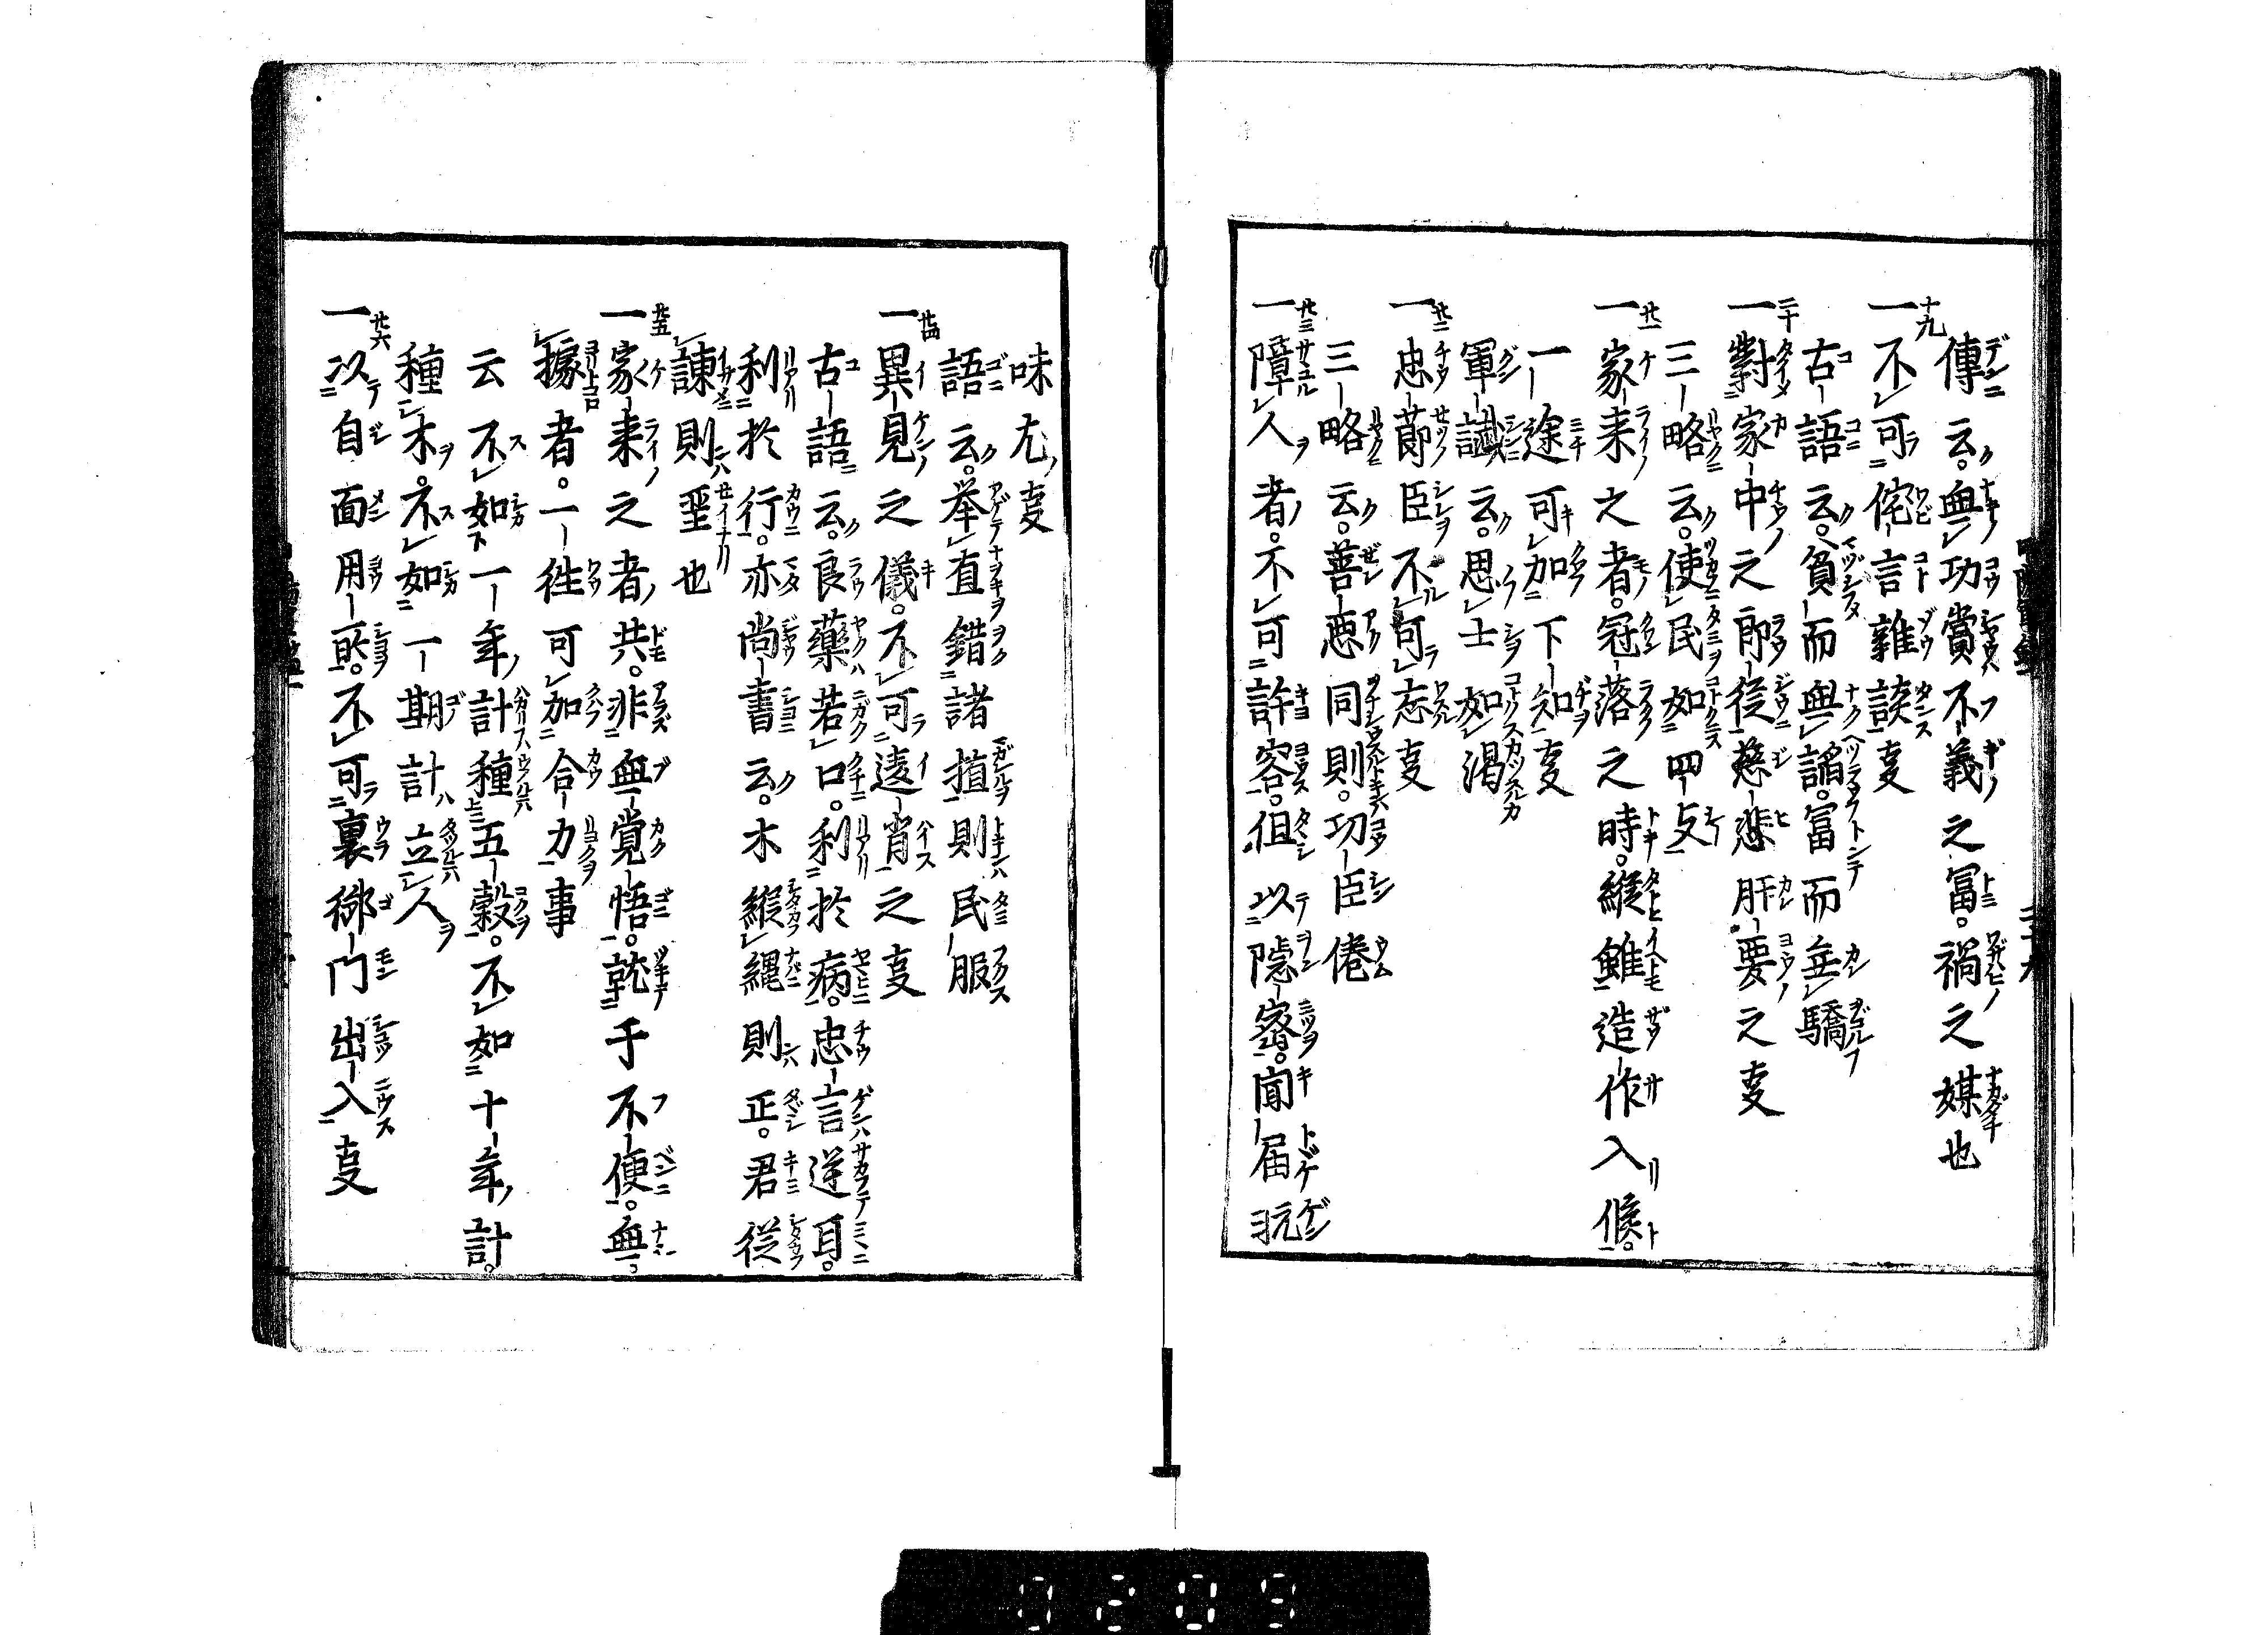 傳云。無功賞不義之冨。禍之媒也
十九
一不可侘言雜談事
古語云。貧而無諂。冨而無驕
二十
一對家中之郎從慈悲肝要之事
三略云。使民如四支
廿一
一家来之者。冠落之時。縦雖造作入候。
一途可加下知事
軍讖云。思士如渇
廿二
一忠莭臣不可忘事
三略云。善悪同則。功臣倦
廿三
一障人者。不可許容。但以隠密。聞届
味尤事
語云。挙直錯諸則民服
廿四
一異見之儀。不可違背之事
古語云。良藥若口。利於病。忠言逆耳。
利於行。亦尚書云。木縦縄則正。君従
諌則聖也
廿五
一家来之者共。非無覚悟。乾于不便。無
㨿者。一徃可加合力事
云不如一年計種五穀。不如十年計。
種木。不如一期計立人
廿六
一以自面用所。不可裏御門出入事
0203